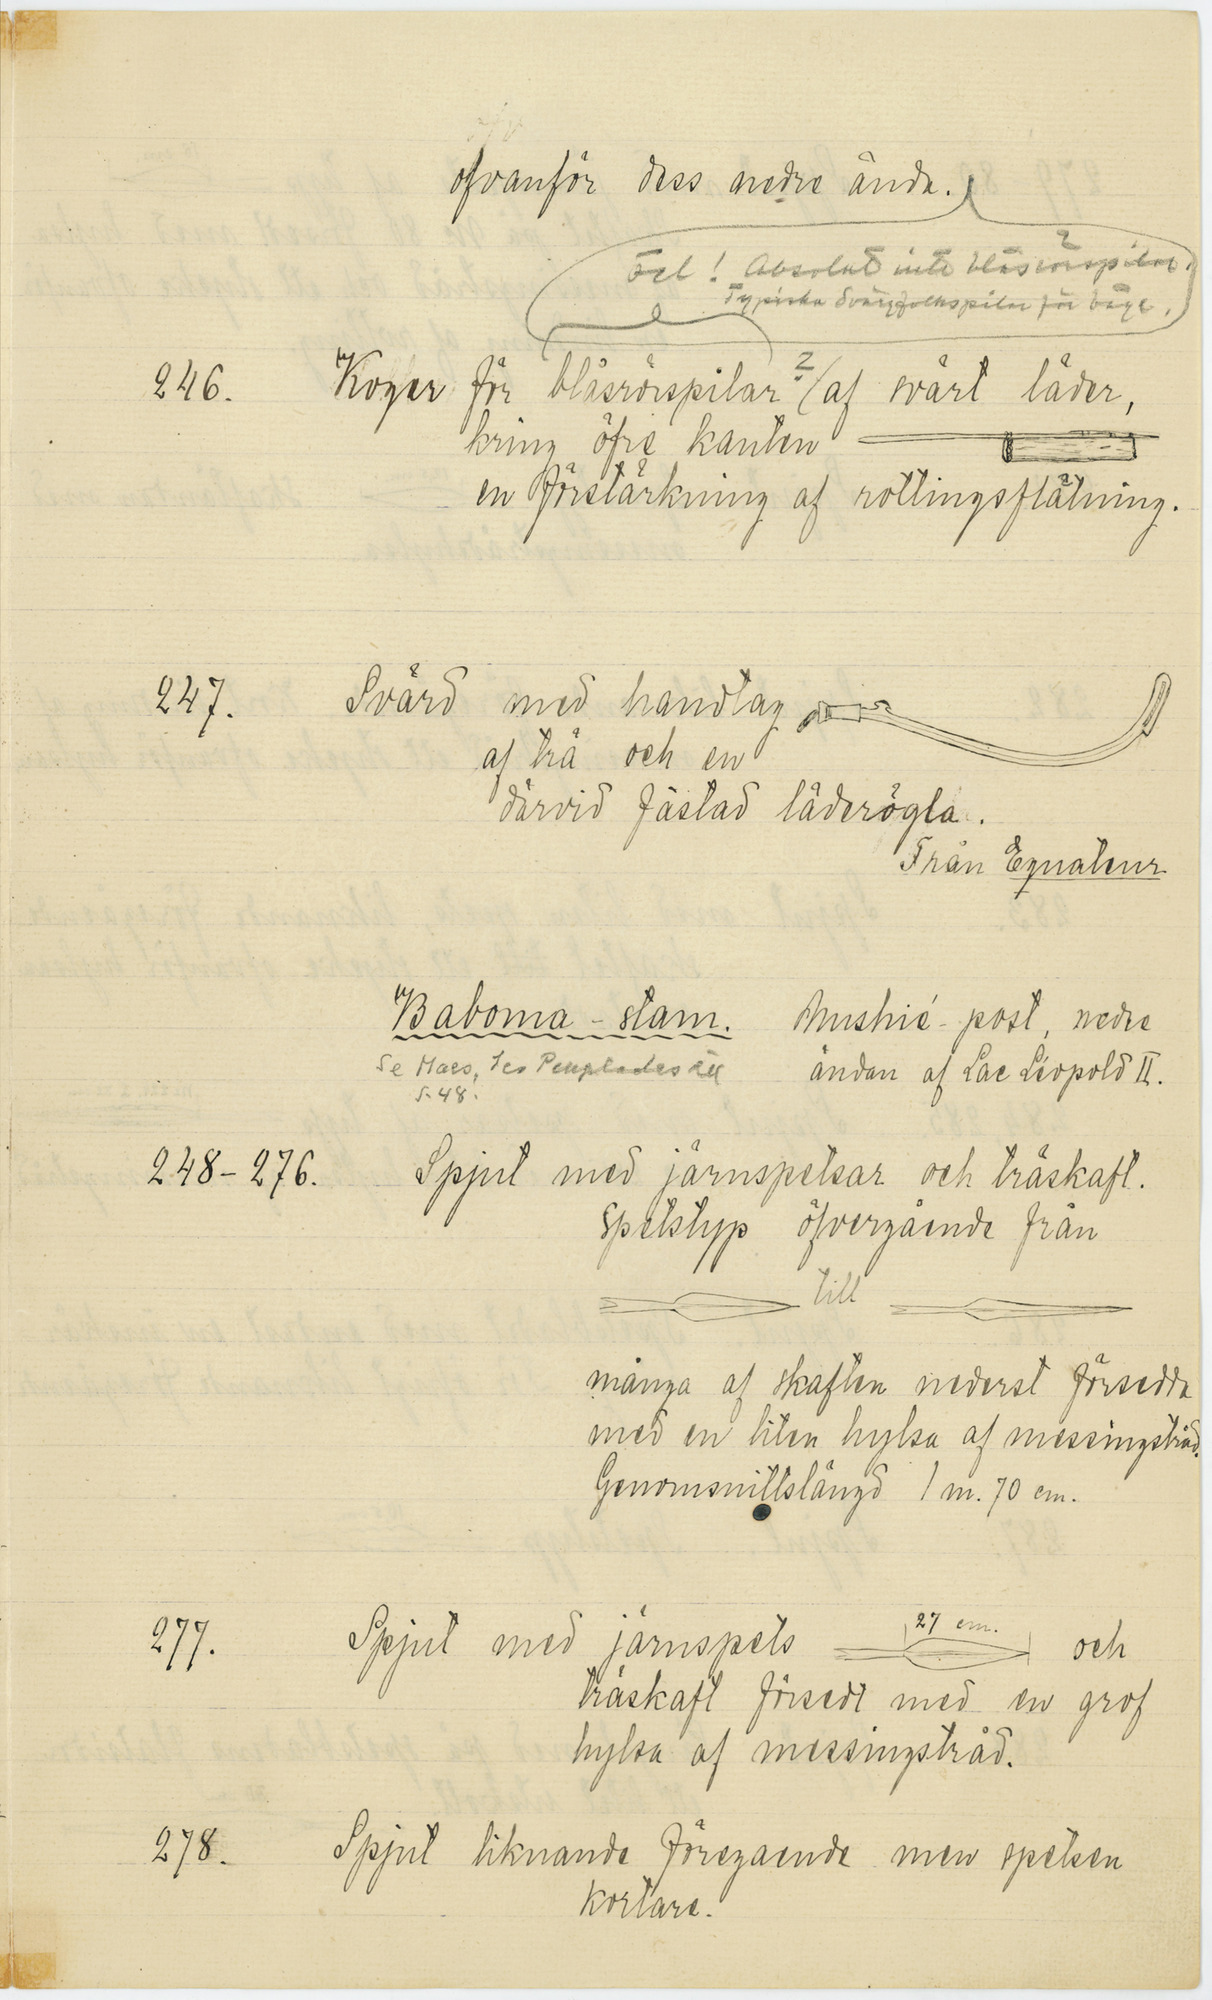 ofvanför dess nedre ände.
Fel! Absolut inte blåsrörspilar.
Typiska Dvärgfolkspilar för båge.
246. Koger för blåsrörspilar? (af svårt läder,
kring öfre kanten
en förstärkning af rottingsflätning.
247. Svärd med handtag
af trä och en
därvid fästad läderögla.
Från Equateur
Baboma-stam. Mushié-post, nedre
ändan af Lac Léopold II.
Se Maes, Les Peuplades
s. 48.
248-276. Spjut med järnspetsar och träskaft.
Spetstyp öfvergående från
till
många af skaften nederst försedda
med en liten hylsa af messingstråd.
Genomsnittslängd 1 m. 70 cm.
27 cm.
277. Spjut med järnspets och
träskaft försedt med en grof
hylsa af messingstråd.
278. Spjut liknande föregaende men spetsen
kortare.